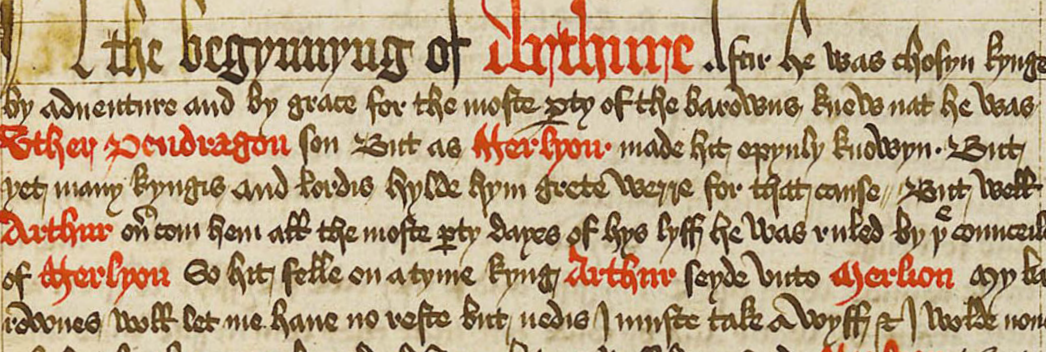 I the begynnyng of Arthure After he was chosyn kynge
by adventure and by grace for the moste pty of the barowns knew nat he was
Uther Pendragon son But as Merlyon made hit opynly knowyn. But
yet many kyngis and lordis hylde hym grete werre for that cause. But well
Arthur oucom hem all the moste pty dayes of hys lyff he was ruled by þe counceile
of Merlyon So hit felle on a tyme kyng Arthur seyde unto Merlion My ba
rownes woll let me have no reste but nedis I muste take a wyff & I wolde none